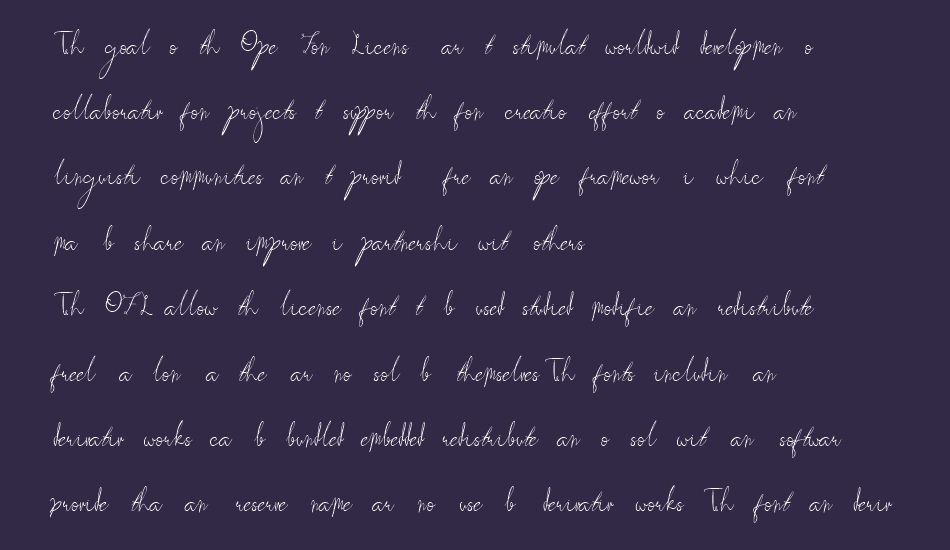 Th goal o th Ope Fon Licens ar t stimulat worldwid developmen o
collaborativ fon projects t suppor th fon creatio effort o academi an
linguisti communities an t provid fre an ope framewor i whic font
ma b share an improve i partnershi wit others
Th OFL allow th license font t b used studied modifie an redistribute
freel a lon a the ar no sol b themselves Th fonts includin an
derivativ works ca b bundled embedded redistribute an o sol wit an softwar
provide tha an reserve name ar no use b derivativ works Th font an deriv